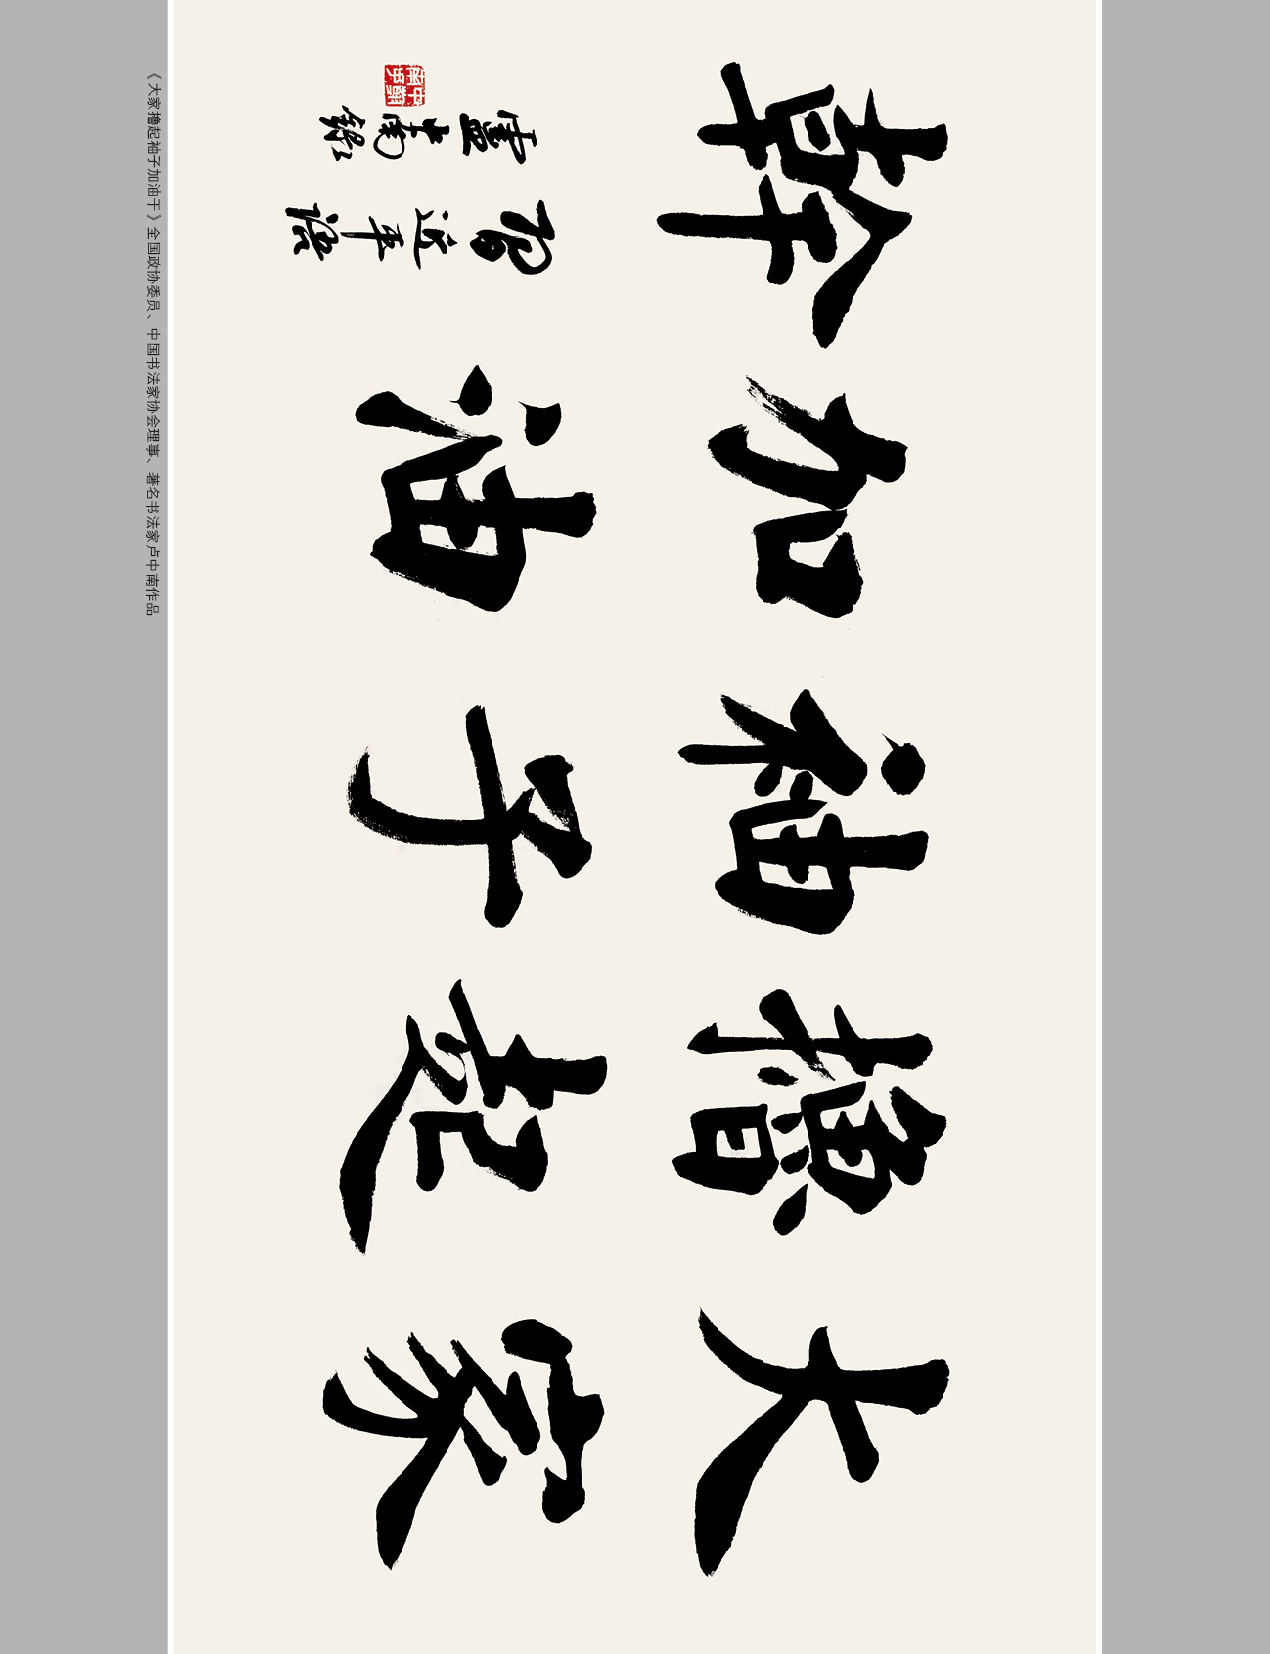 大家
擼起
袖子
加油
幹
習近平語
盧中南錄
《大家撸起袖子加油干》全国政协委员、中国书法家协会理事、著名书法家卢中南作品